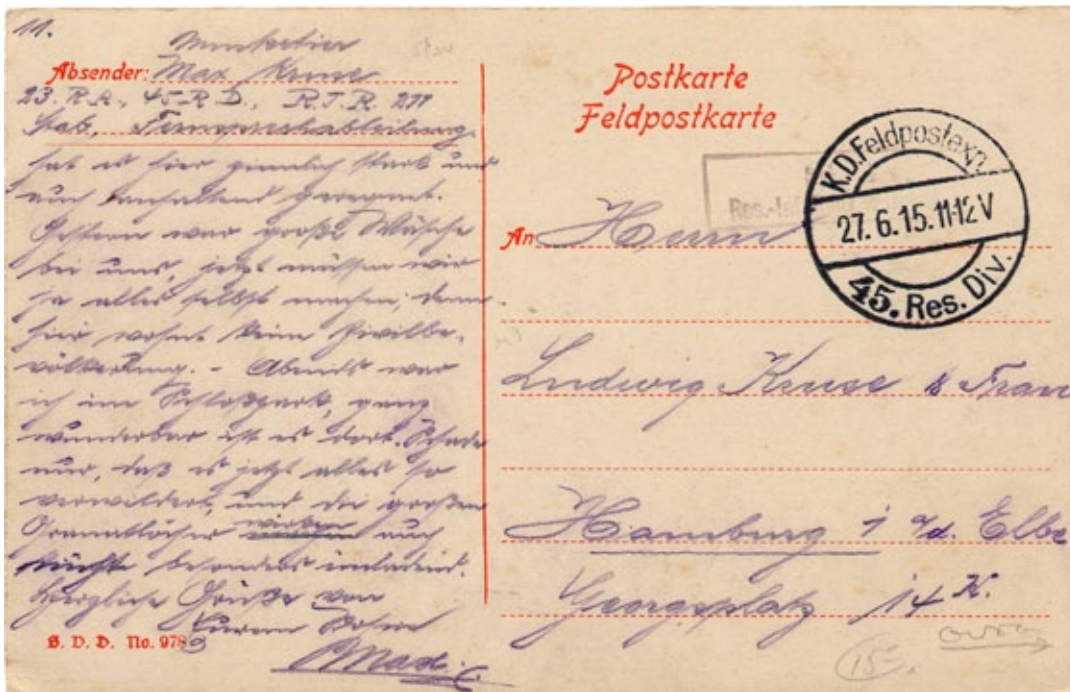 11.
Musketier
Absender: Max Kruse
23. R.K., 45. R.D., R.J.R. 211
Stab, Fernsprechabteilung.
hat es hier ziemlich stark und
auch anhaltend geregnet.
Gestern war große Wäsche
bei uns, jetzt müssen wir
ja alles selbst machen, denn
hier wohnt keine Zivilbe-
völkerung. - Abends war
ich im Schloßpark, ganz
wunderbar ist es dort. Schade
nur, daß es jetzt alles so
verwildert, und die großen
Granatlöcher wirken auch
nicht besonders einladend.
Herzliche Grüße von
Eurem Sohn
Max.
S. V. D. No. 978
Postkarte
Feldpostkarte
K.D.Feldpostexp.
27.6.15.11-12V
45. Res. Div.
Res.-
An Herrn
Ludwig Kruse & Frau
Hamburg 1 a/d. Elbe
Georgsplatz 14 K.
15.-